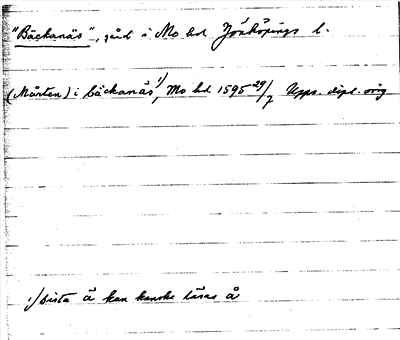 "Bäckanäs", gård i Mo hd Jönköpings l.
(Mårten) i bäckanäs 1), Mo hd 1595 29/7 Upps. dipl. orig
1) Sista ä kan kanske läsas å